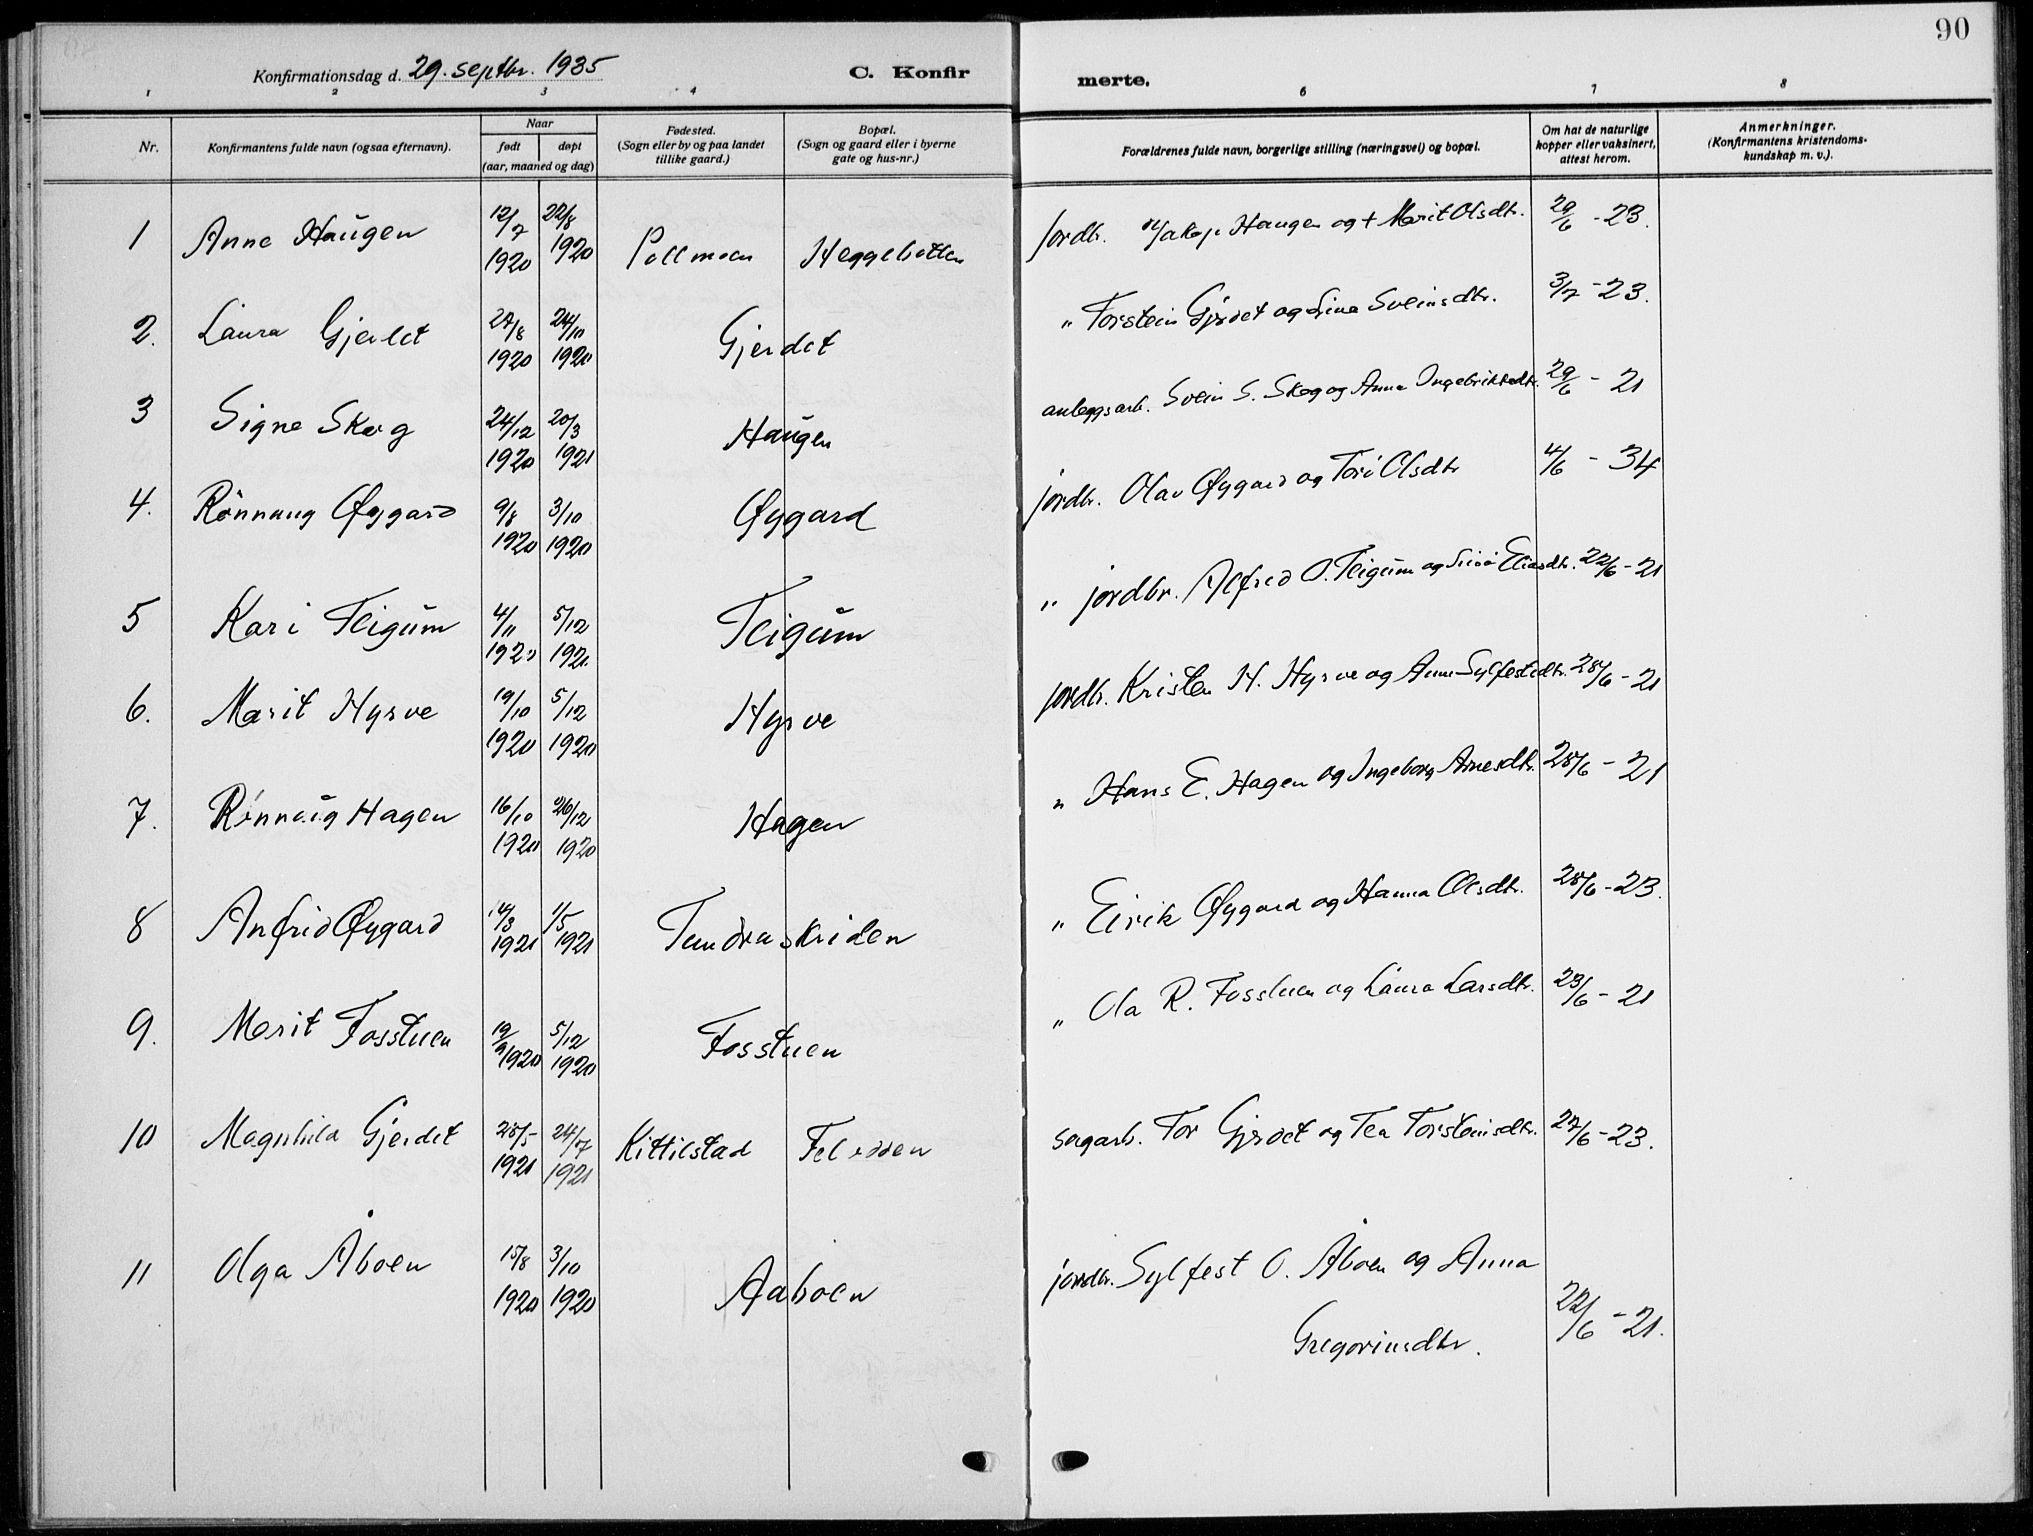 90
Konfirmationsdag d. 29. septbr. 1935
C. Konfir
merte.
1 2 3 4 6 7 8
Nr.
Konfirmantens fulde navn (ogsaa efternavn).
Naar
født døpt
(aar, maaned og dag)
Fødested.
(Sogn eller by og paa landet
tillike gaard.)
Bopæl.
(Sogn og gaard eller i byerne
gate og hus-nr.)
Forældrenes fulde navn, borgerlige stilling (næringsvei) og bopæl.
Om hat de naturlige
kopper eller vaksinert,
attest herom.
Anmerkninger.
(Konfirmantens kristendoms-
kundskap m. v.).
1 Anne Haugen 12/7 1920 22/8 1920 Pollmoen Heggebotten jordbr. Jakop Haugen og + Marit Olsdtr. 29/6 - 23.
2. Laura Gjerdet 27/8 1920 24/10 1920 Gjerdet " Torstein Gjerdet og Sina Sveinsdtr. 3/7 - 23.
3 Signe Skog 24/12 1920 20/3 1921 Haugen anleggsarb. Svein S. Skog og Anna Ingebriktsdtr. 29/6 - 21
4. Rönnaug Øygard 9/8 1920 3/10 1920 Øygard jordbr. Olav Øygard og Tori Olsdtr 4/6 - 34
5 Kari Teigum 4/11 1920 5/12 192 Teigum " jordbr. Alfred O. Teigum og Eliasdtr. 22/6 - 21
6. Marit Hyrve 19/10 1920 5/12 1920 Hyrve jordbr. Kristen H. Hyrve og Anne Sylfestdtr. 28/6 - 21
7. Rönnaug Hagen 16/10 1920 26/12 1920 Hagen " Hans E. Hagen og Ingeborg Arnesdtr. 28/6 - 21
8 Anfrid Øygard 14/3 1921 1/5 1921 Tundraskriden " Eirik Øygard og Hanna Olsdtr. 28/6 - 23.
9. Marit Fosstuen 19/9 1920 5/12 1920 Fosstuen " Ola R. Fosstuen og Laura Larsdtr. 23/6 - 21
10 Magnhild Gjerdet 28/5 1921 24/7 1921 Kittilstad sagarb. Tor Gjerdet og Tea Torsteinsdtr. 27/6 - 23.
11 Olga Åboen 15/8 1920 3/10 1920 Aaboen jordbr. Sylfest O. Åboen og Anna
Gregoriusdtr. 22/6 - 21.